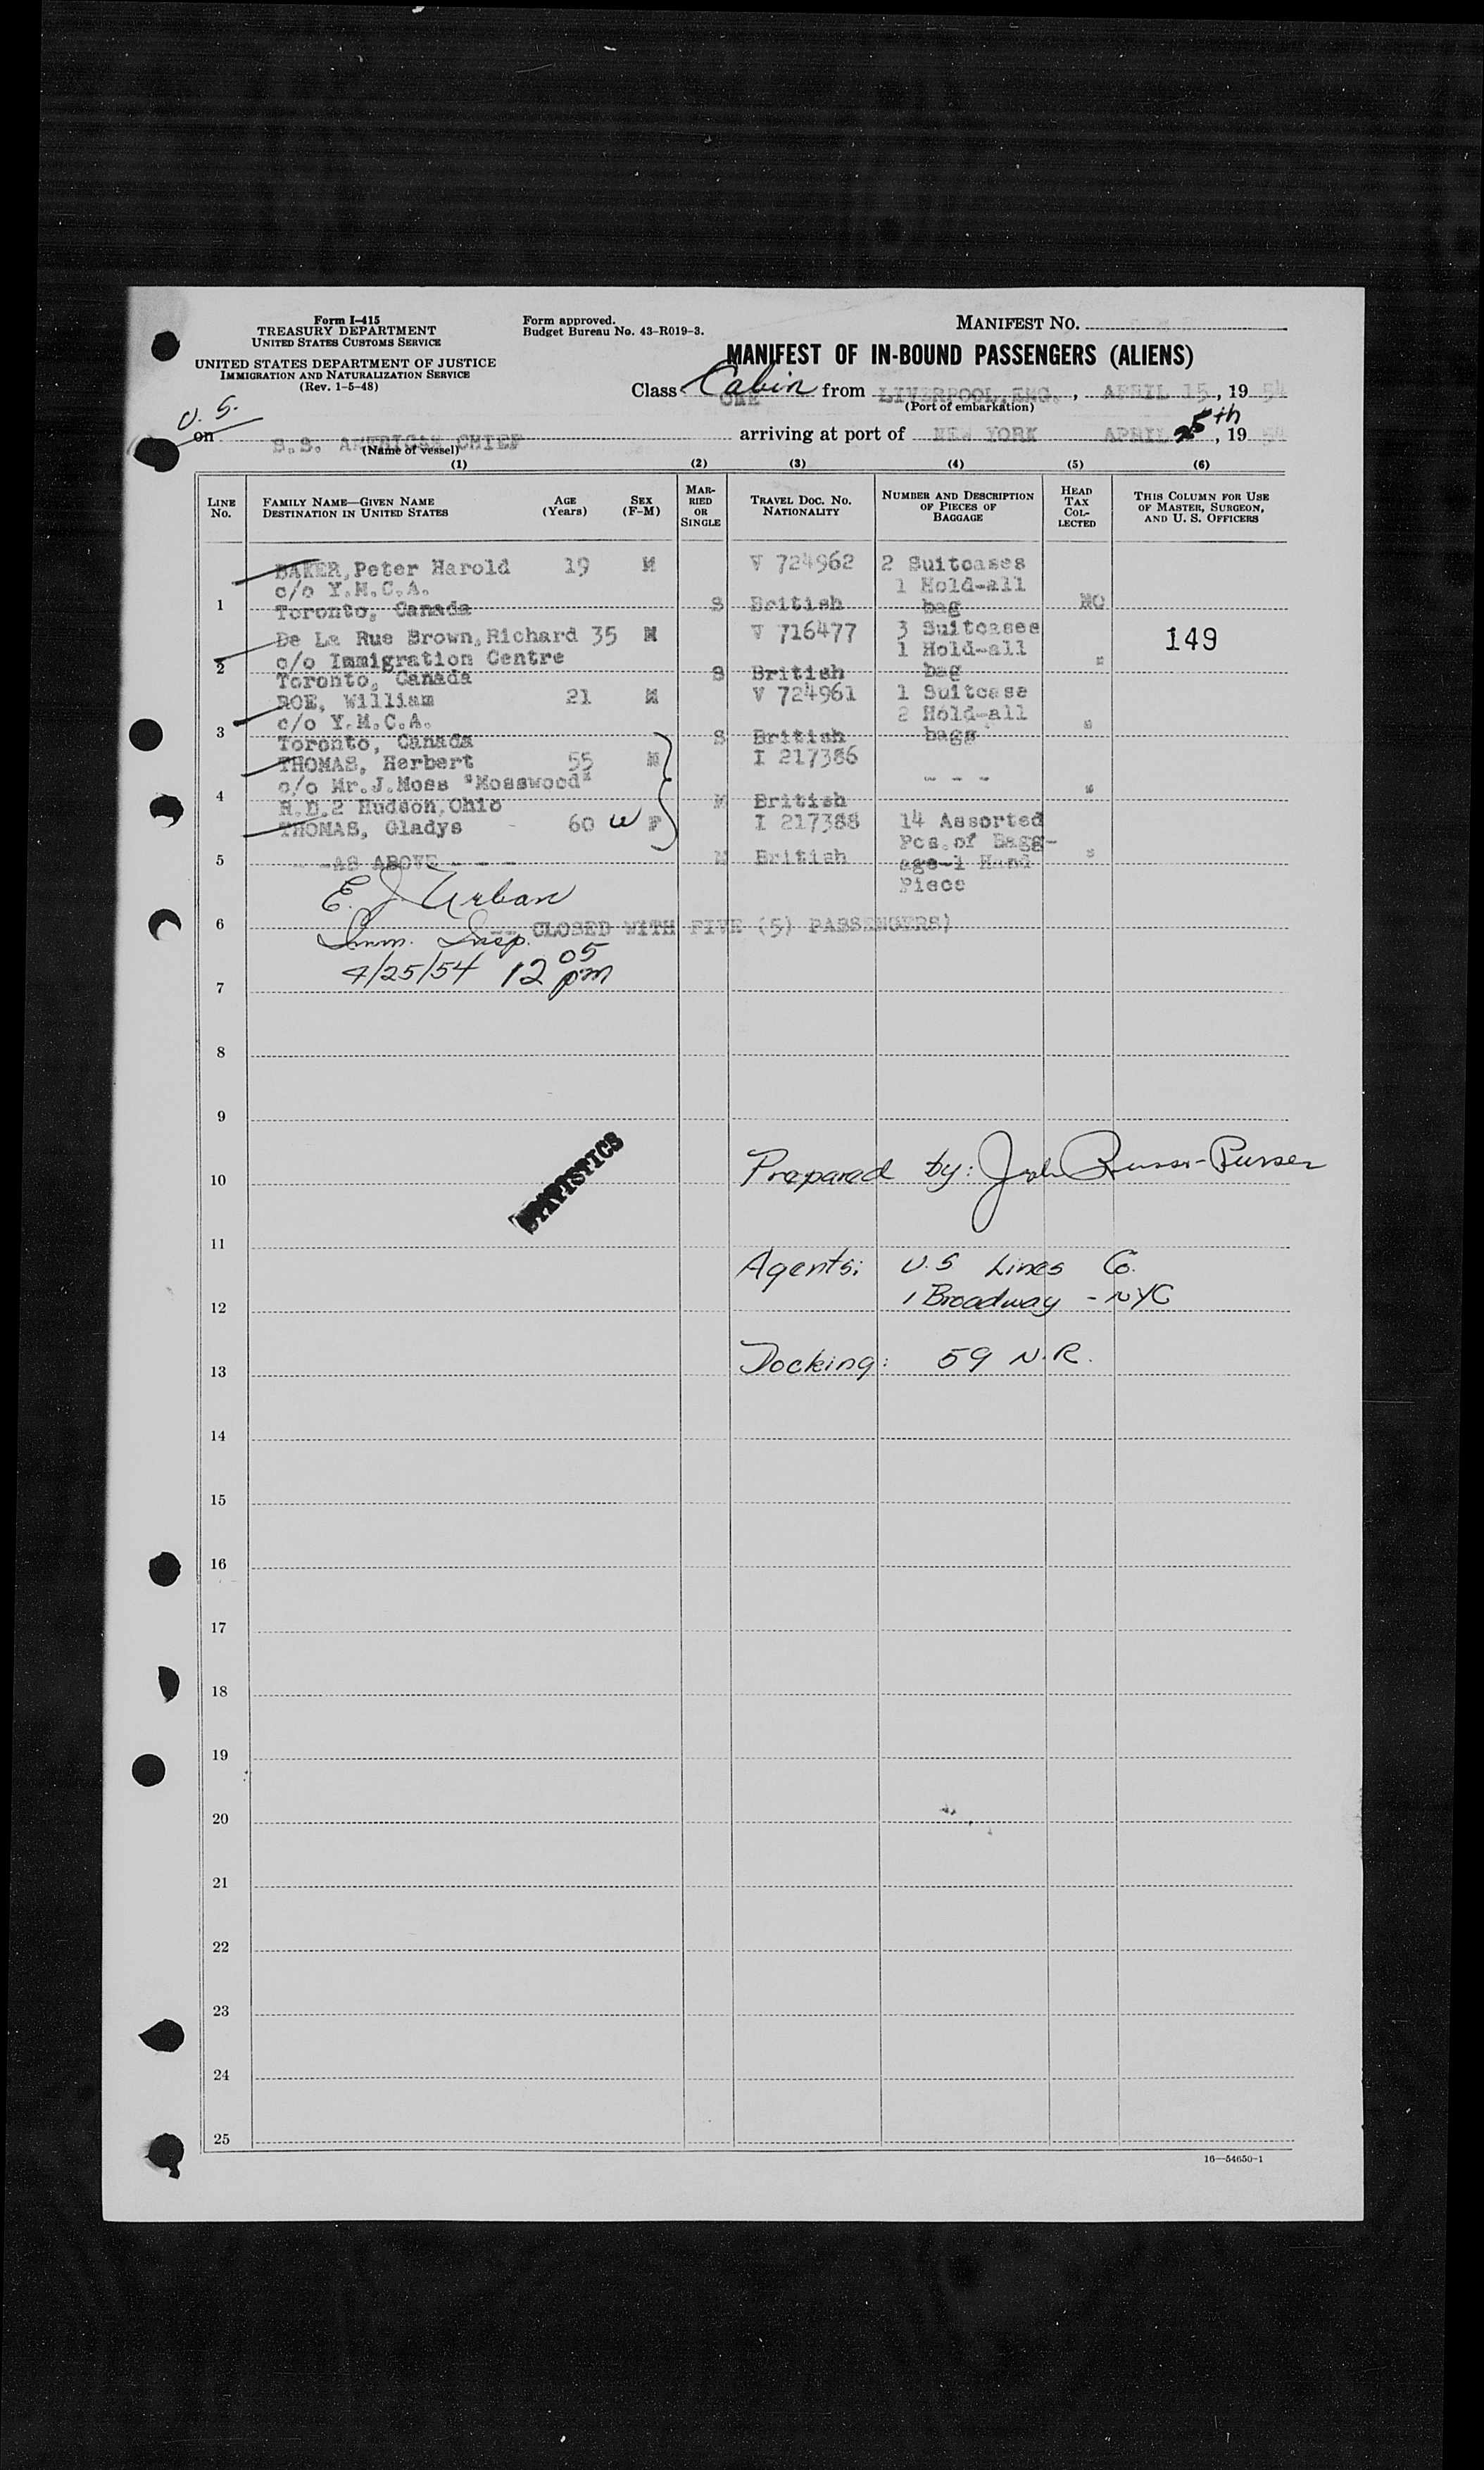 Form I-415
TREASURY DEPARTMENT
UNITED STATES CUSTOMS SERVICE
UNITED STATES DEPARTMENT OF JUSTICE
IMMIGRATION AND NATURALIZATION SERVICE
(Rev. 1-5-48)
Form approved.
Budget Bureau No. 43-R019-3.
MANIFEST NO.
MANIFEST OF IN-BOUND PASSENGERS (ALIENS)
Class Cabin ONE from LIVERPOOL, ENG. , APRIL 15 , 19 54
(Port of embarkation)
U. S.
on S.S. AMERICAN CHIEF arriving at port of NEW YORK APRIL 25th , 19 54
(Name of vessel)
(1) (2) (3) (4) (5) (6)
LINE No. FAMILY NAME—GIVEN NAME DESTINATION IN UNITED STATES AGE (Years) SEX (F-M) MARRIED OR SINGLE TRAVEL DOC. NO. NATIONALITY NUMBER AND DESCRIPTION OF PIECES OF BAGGAGE HEAD TAX COLLECTED THIS COLUMN FOR USE OF MASTER, SURGEON, AND U. S. OFFICERS
BAKER, Peter Harold 19 M V 724962 2 Suitcases
c/o Y.M.C.A. 1 Hold-all
1 Toronto, Canada S British bag NO
De La Rue Brown, Richard 35 M V 716477 3 Suitcases 149
c/o Immigration Centre 1 Hold-all
2 Toronto, Canada S British bag "
ROE, William 21 M V 724961 1 Suitcase
c/o Y.M.C.A. 2 Hold-all
3 Toronto, Canada S British bags "
THOMAS, Herbert 55 M I 217386
c/o Mr. J. Moss "Mosswood" - - -
4 R.D.2 Hudson, Ohio M British "
THOMAS, Gladys 60 W F I 217388 14 Assorted
Pcs. of Bagg-
5 - -AS ABOVE - - - M British age-1 Hand "
Piece
E. J. Urban
6 -- CLOSED WITH FIVE (5) PASSENGERS)
Imm. Insp.
7 4/25/54 12 05 pm
8
9
STATISTICS
10 Prepared by: Russo - Purser
11
Agents: U.S Lines Co.
12 1 Broadway - NYC
13 Docking: 59 N.R.
14
15
16
17
18
19
20
21
22
23
24
25
16—54650-1